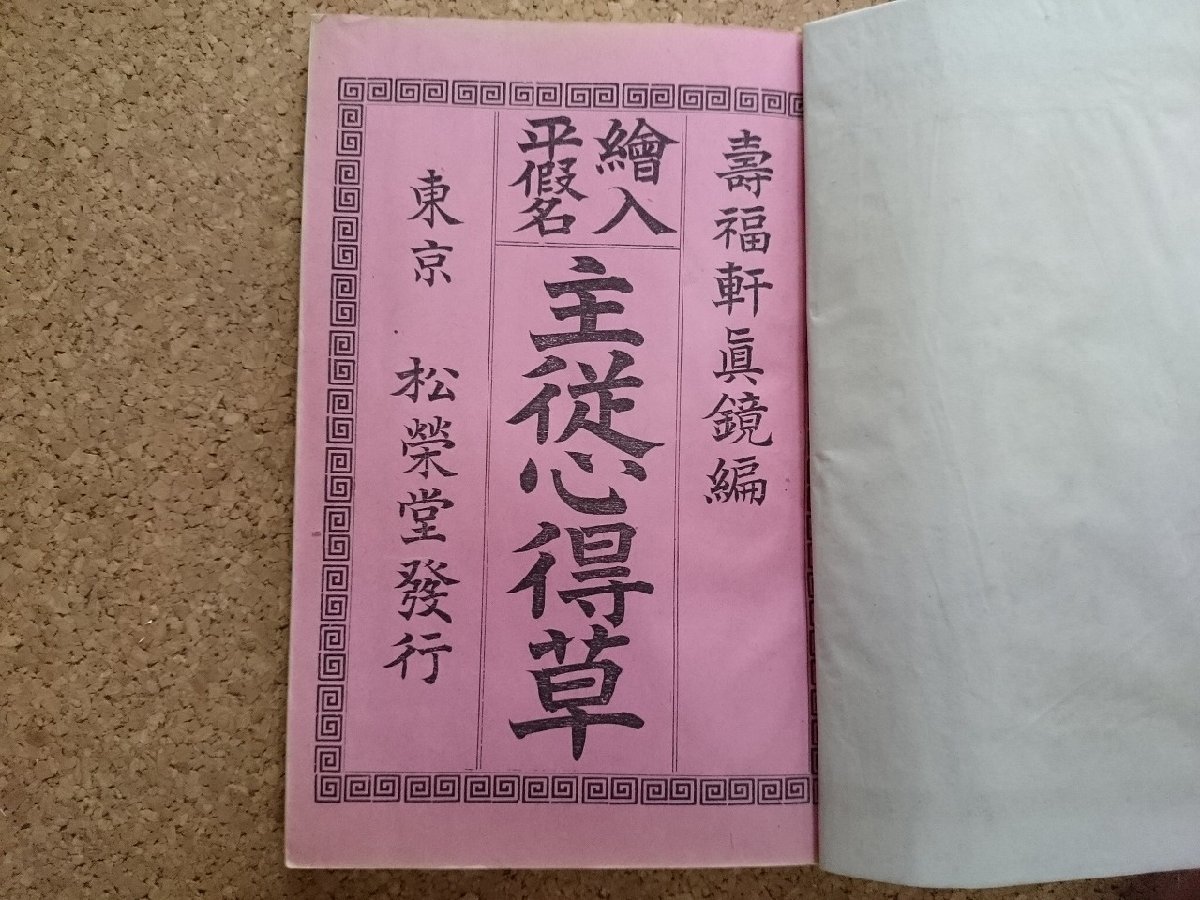 壽福軒眞鏡編
繪入
平假名
主從心得草
東京 松榮堂發行